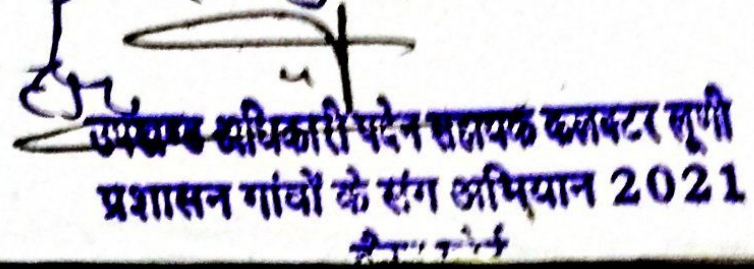 उपखण्ड अधिकारी पदेन सहायक कलक्टर लूणी
प्रशासन गांवों के संग अभियान 2021